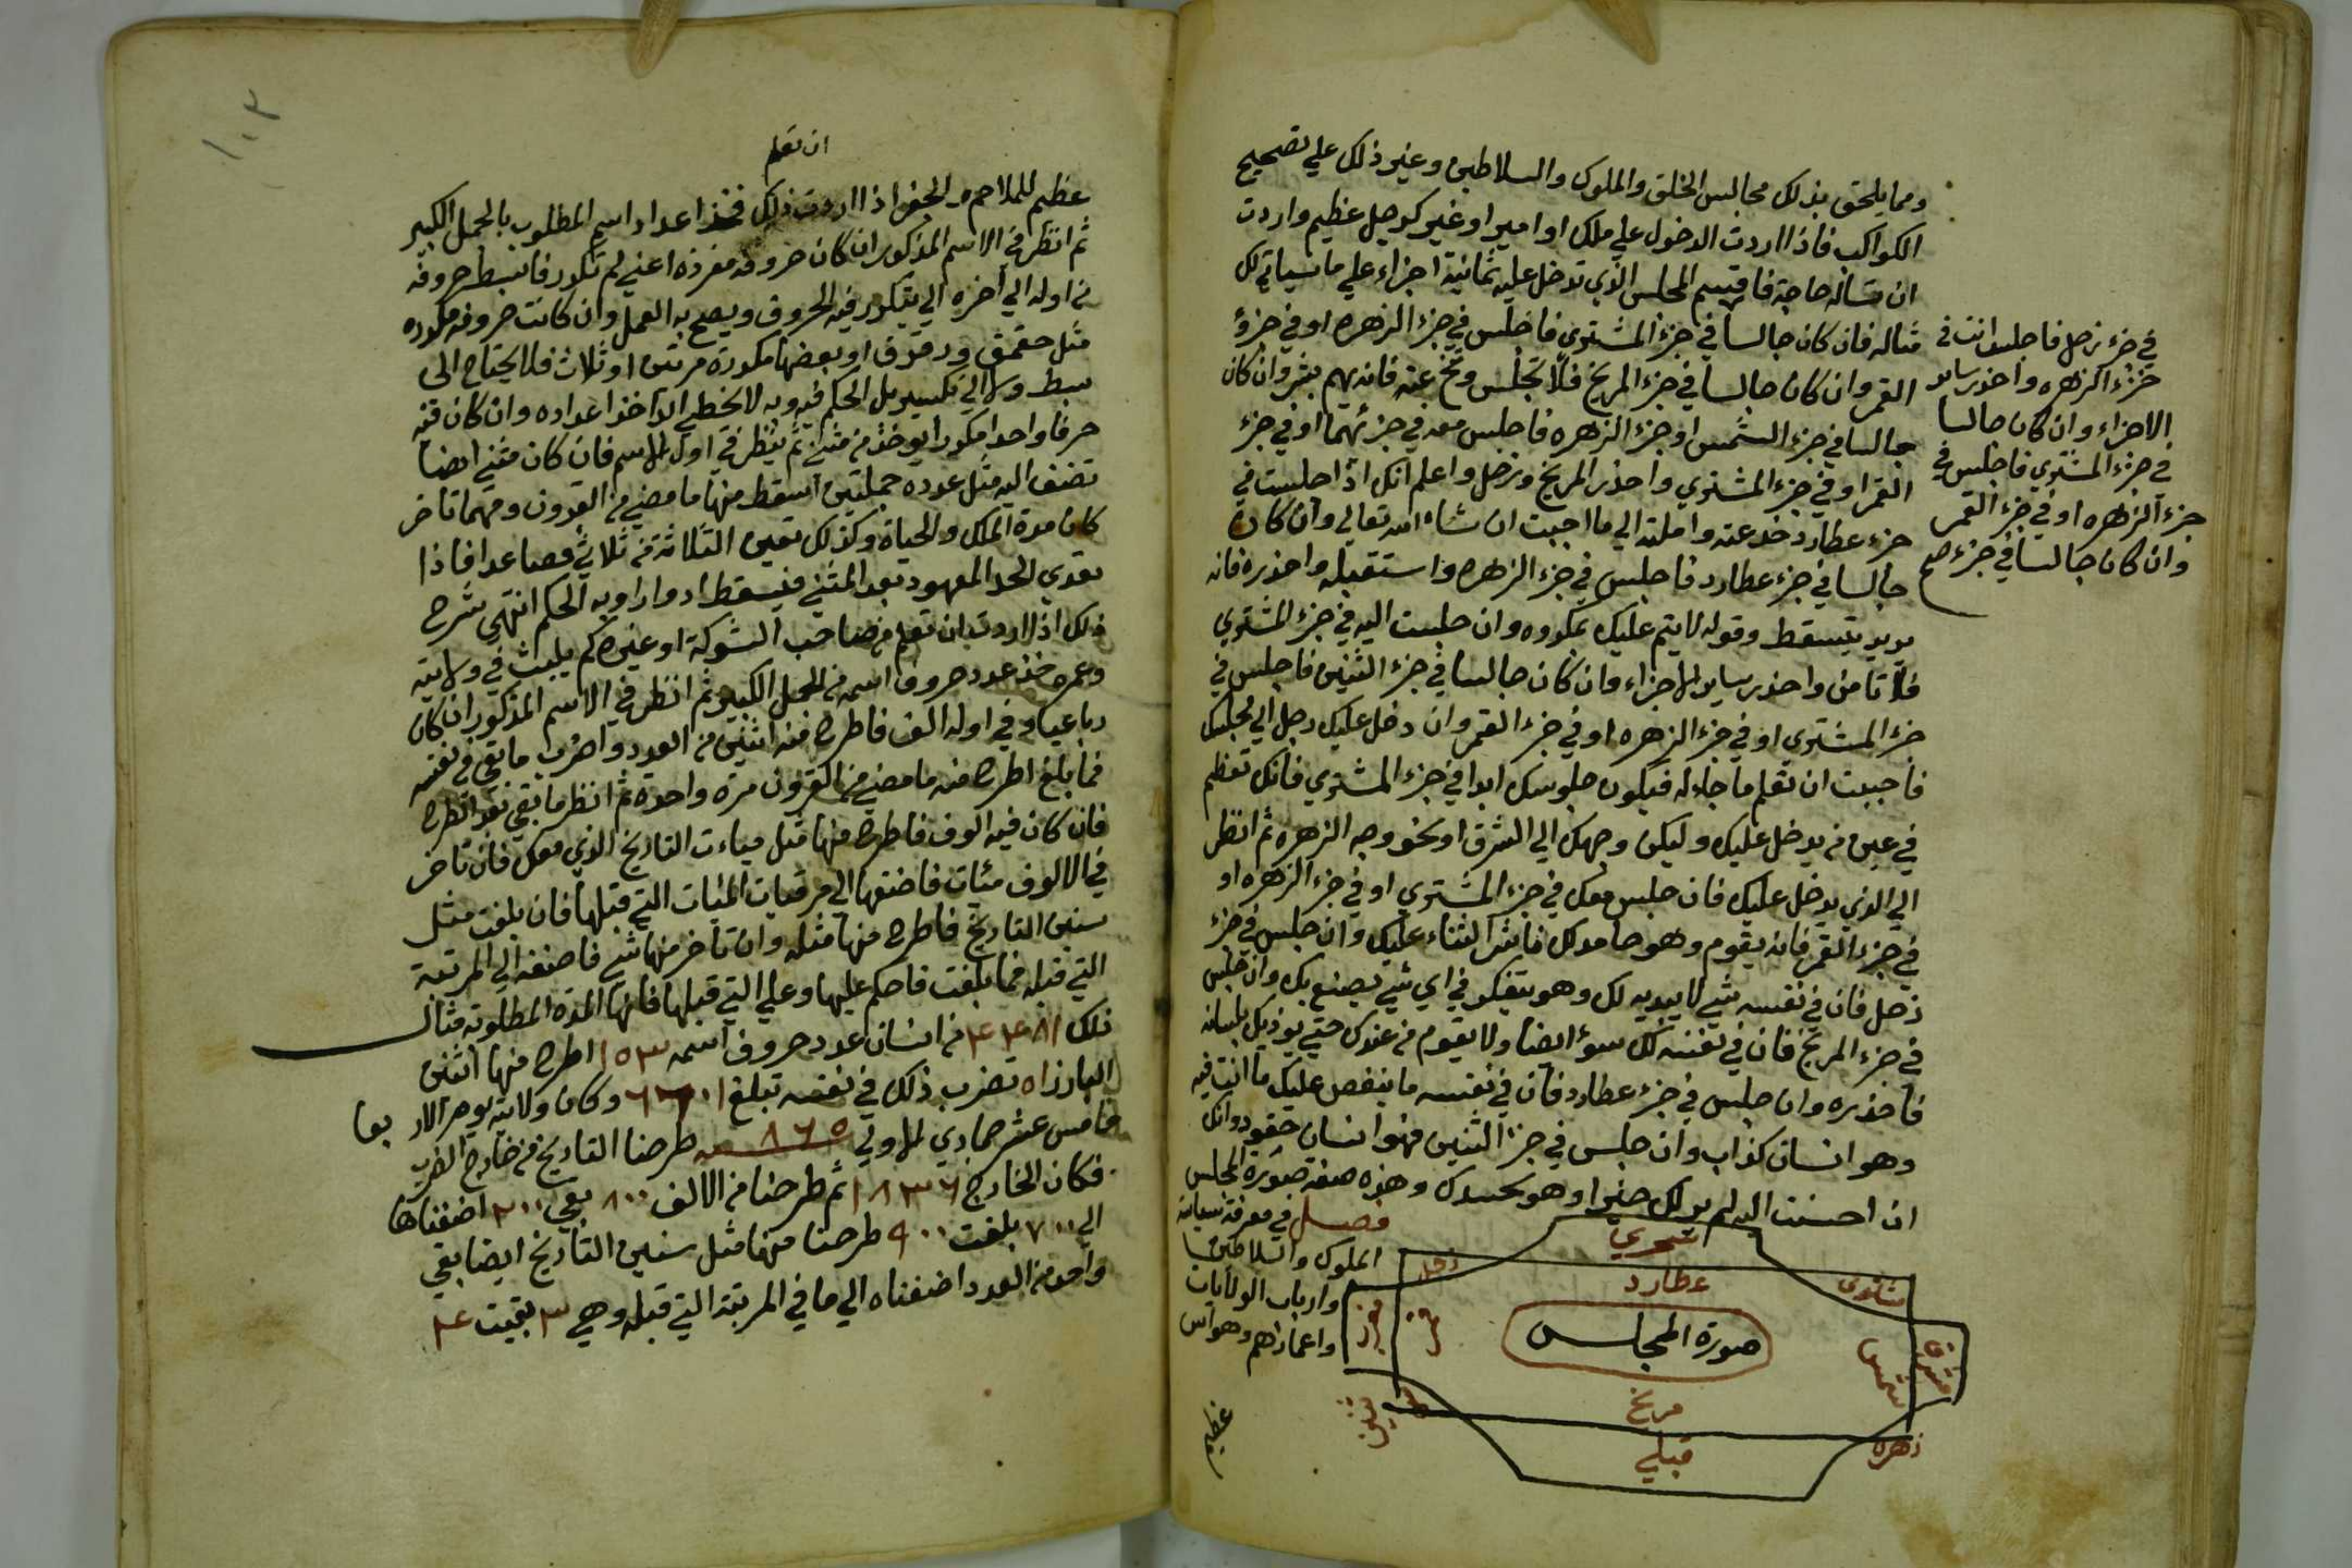 ومما يلحق بذلك مجالس الخلق والملوك والسلاطين وغير ذلك علي تصحيح
الكواكب فاذا اردت الدخول علي ملك او امير او غير كرجل عظيم واردت
ان تساله حاجة فاقسم المجلس الذي تدخل عليه ثمانية اجزاء علي ما سياتي لك
مثاله فان كان جالسا في جزء المشتري فاجلس في جزء الزهره او في جزؤ
القمر وان كان جالسا في جزء المريخ فلا تجلس وتنح عنه فانه يهم بشر وان كان
جالسا في جزء الشمس او جزء الزهره فاجلس معه في جزئهما او في جزء
القمر او في جزء المشتري واحذر المريخ وزحل واعلم انك اذا جلست في
جزء عطارد خدعته واملته الي ما احببت ان شاء الله تعالي وان كان
جالسا في جزء عطارد فاجلس في جزء الزهره واستقبله واحذره فانه
يريد يتسقط وقوله لا يتم عليك بمكروه وان جلست اليه في جزء المشتري
فلا تامن واحذر ساير الاجزاء وان كان جالسا في جزء التنين فاجلس في
جزء المشتري او في جزء الزهره او في جزء القمر وان دخل عليك رجل الي مجلسك
فاحببت ان تعلم ما جاء له فيكون جلوسك ابدا في جزء المشتري فانك تعظم
في عين من يدخل عليك وليكن وجهك الي الشرق او نحو وجه الزهره ثم انظر
الي الذي يدخل عليك فان جلس معك في جزء المشتري او في جزء الزهره او
في جزء القمر فانه يقوم وهو حامد لك ناشر الثناء عليك وان جلس في جزء
زحل فان في نفسه شي لا يبديه لك وهو يتفكر في اي شي يصنع بك وان جلس
في جزء المريخ فان في نفسه لك سوء ايضا ولا يقوم من عندك حتي يوذيك بلسانه
فاحذره وان جلس في جزء عطارد فان في نفسه ما ينغص عليك ما انت فيه
وهو انسان كذاب وان جلس في جزء التنين فهو انسان حقود وانك
ان احسنت اليه لم ير لك خيرا وهو يحسدك وهذه صفة صورة المجلس
في جزء زحل فاجلس انت في
جزء الزهره واحذر ساير
الاجزاء وان كان جالسا
في جزء المشتري فاجلس في
جزء الزهره او في جزء القمر
وان كان جالسا في جزء صح
فصل في معرفة
الملوك والسلاطين
وارباب الولايات
واعمارهم وهو اس
بحري
زحل
عطارد
مشتري
صورة المجلس
شمس
شرق
قمر
مريخ
تنين
زهره
قبلي
عظيم
١٠٣
ان تعلم
عظيم للملاحم والجفر اذا اردت ذلك فخذ اعداد اسم المطلوب بالجمل الكبير
ثم انظر في الاسم المذكور ان كان حروفه مفرده اعني لم تكرر فابسط حروفه
من اوله الي اخره الي يتكرر فيه الحروف ويصح به العمل وان كانت حروفه مكرره
مثل حقمق ودقدق او بعضها مكررة مرتين او ثلاث فلا يحتاج الى
بسط ولا الي تكسير بل الحكم فيه وبه لا يخطي ابدا خذ اعداده وان كان فيه
حرفا واحدا مكررا يوخذ من مثني ثم ينظر في اول الاسم فان كان مثني ايضا
تضف اليه مثل عدده جملتين اسقط منها ما مضي من القرون ومهما تاخر
كان مدة الملك والحياة وكذلك تعين الثلاثة من ثلاثي فصاعدا فاذا
تعدي الحد المعهود بعد المثني فيسقط ادوارا وبه الحكم انتهي شرح
ذلك اذا اردت ان تعلم من صاحب الشوكة او غيره كم يلبث في ولايته
وعمره خذ عدد حروف اسمه من الجمل الكبير ثم انظر في الاسم المذكور ان كان
رباعيا وفي اوله الف فاطرح منه اثنين من العدد واضرب ما بقي في نفسه
فما بلغ اطرح منه ما مضي من القرون مرة واحده ثم انظر ما بقي بعد الطرح
فان كان فيه الوف فاطرح منها مثل مياءت التاريخ الذي معك فان تاخر
في الالوف مئات فاضفها الي مرتبات المئات التي قبلها فان بلغت مثل
سنين التاريخ فاطرح منها مثله وان تاخر منها شي فاضفه الي المرتبة
التي قبله فما بلغت فاحكم عليها وعلي التي قبلها فانها المدة المطلوبه مثال
ذلك من انسان عدد حروف اسمه ١٥٣ اطرح منها اثنين
البارز ١٥١ تضرب ذلك في نفسه تبلغ وكان ولايته يوم الاربعا
خامس عشر جمادي الاولي سنة ٨٦٥ طرحنا التاريخ من خارج الضرب
فكان الخارج ثم طرحنا من الالف ٨٠٠ بقي ٢٠٠ اضفناها
الي ٧٠٠ بلغت ٩٠٠ طرحنا منها مثل سنين التاريخ ايضا بقي
واحد من العدد اضفناه الي ما في المرتبة التي قبله وهي ٣ بقيت ٤